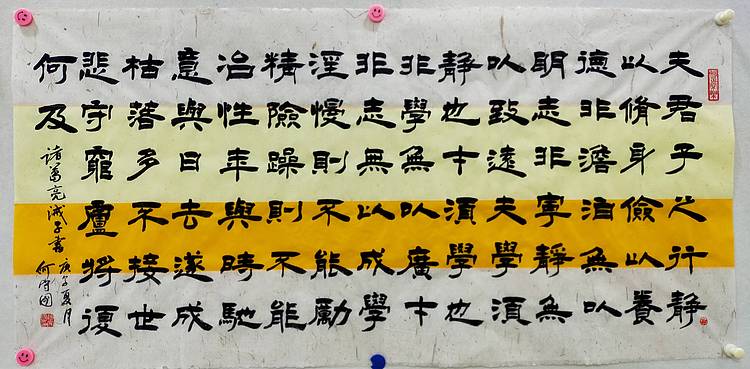 夫君子之行靜
以脩身儉以養
德非澹泊無以
明志非寧靜無
以致遠夫學須
靜也才須學也
非學無以廣才
非志無以成學
淫慢則不能勵
精險躁則不能
冶性年與時馳
意與日去遂成
枯落多不接世
悲守窮廬將復
何及
諸葛亮誡子書
庚子夏月
何守國